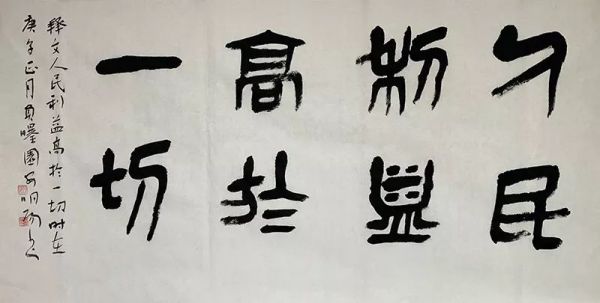 人民
利益
高於
一切
释文人民利益高於一切时在
庚子正月